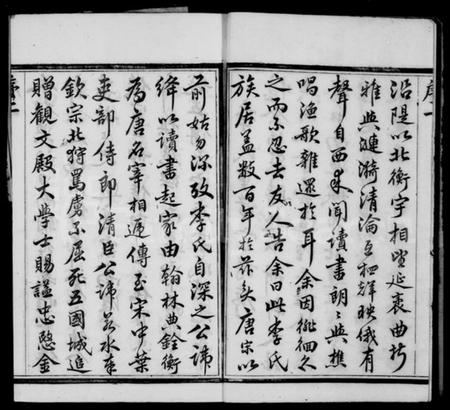 沿隄以北衡宇相望延袤曲折
雅與漣漪清淪互相輝映俄有
聲自西來聞讀書朗朗與樵
唱漁歌雜遝於耳余因徘徊久
之而不忍去友人告余曰此李氏
族居蓋數百年於茲矣唐宗以
前姑勿深攷李氏自深之公諱
絳以讀書起家由翰林典銓衡
為唐名宰相遞傳至宋中葉
吏部侍郎清臣公諱若水奉
欽宗北狩罵虜不屈死五國城追
贈觀文殿大學士賜謚忠愍金
序一
序二